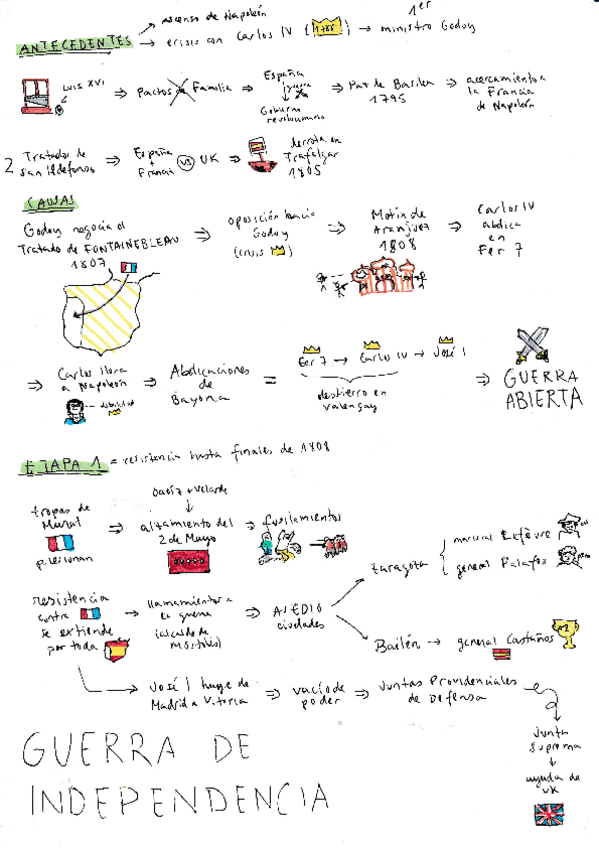 ANTECEDENTES
→ ascenso de Napoleón
→ crisis con Carlos IV (1788) → 1er ministro Godoy
LUIS XVI ⇒ Pactos Familia ⇒ España guerra Gobierno revolucionario ⇒ Paz de Basilea 1795 ⇒ acercamiento a la Francia de Napoleón
2 Tratados de San Ildefonso ⇒ España + Francia VS UK ⇒ derrota en Trafalgar 1805
CAUSAS
Godoy negocia el Tratado de FONTAINEBLEAU 1807 ⇒ oposición hacia Godoy (crisis) ⇒ Motín de Aranjuez 1808 ⇒ Carlos IV abdica en Fer 7
⇒ Carlos llora a Napoleón debilidad ⇒ Abdicaciones de Bayona = Fer 7 → Carlos IV → José I
destierro en Valençay
⇒ GUERRA ABIERTA
ETAPA 1 = resistencia hasta finales de 1808
Daoíz + Velarde
tropas de Murat presionan ⇒ alzamiento del 2 de Mayo ⇒ fusilamientos
resistencia contra se extiende por toda ⇒ llamamiento a la guerra (alcalde de Móstoles) ⇒ ASEDIO ciudades
Zaragoza
mariscal Lefèvre
general Palafox
Bailén → general Castaños
→ José I huye de Madrid a Vitoria ⇒ vacío de poder ⇒ Juntas Providenciales de Defensa
Junta Suprema
ayuda de UK
GUERRA DE
INDEPENDENCIA